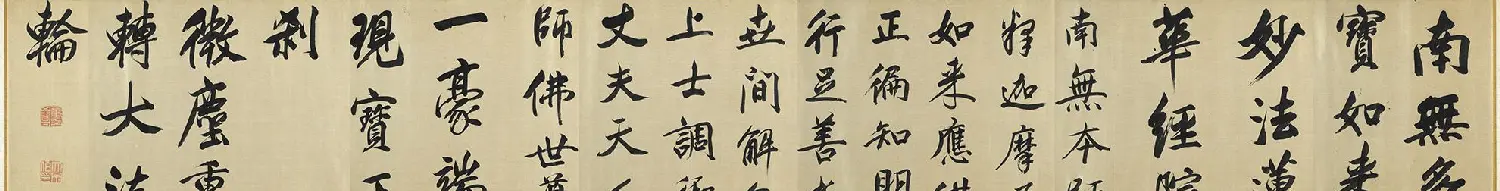 南無多
寶如来
妙法蓮
華經
南無本師
釋迦摩
如来應供
正徧知明
行足善
世間解
上士調御
丈夫天人
師佛世尊
一豪端
現寶王
剎
微塵裏
轉大法
輪